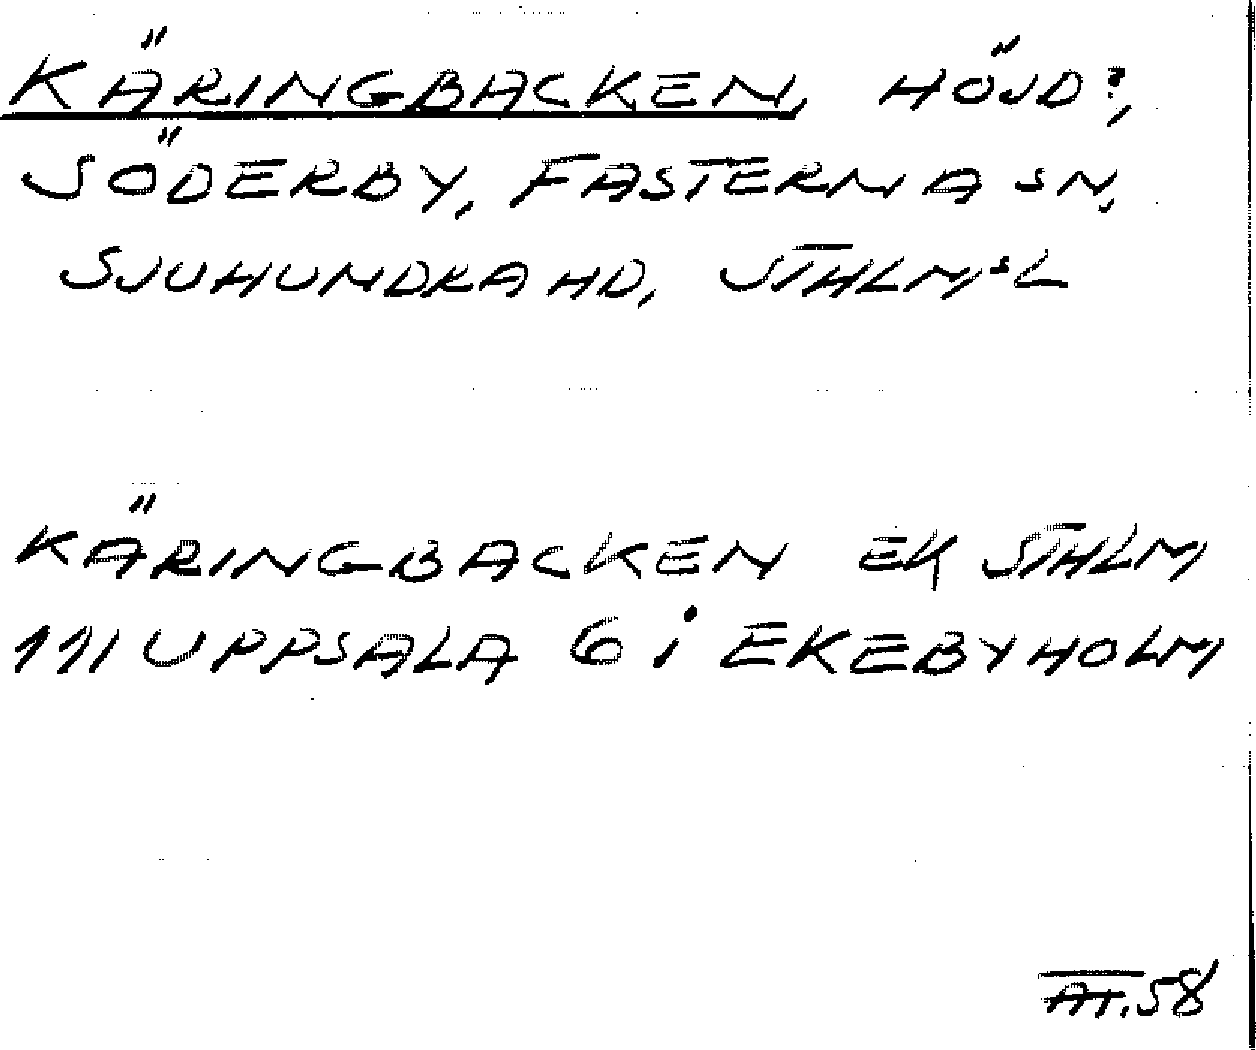 KÄRINGBACKEN, HÖJD?,
SÖDERBY, FASTERNA SN,
SJUHUNDRA HD, STHLMSL
KÄRINGBACKEN EK STHLM
111 UPPSALA 6 i EKEBYHOLM
58